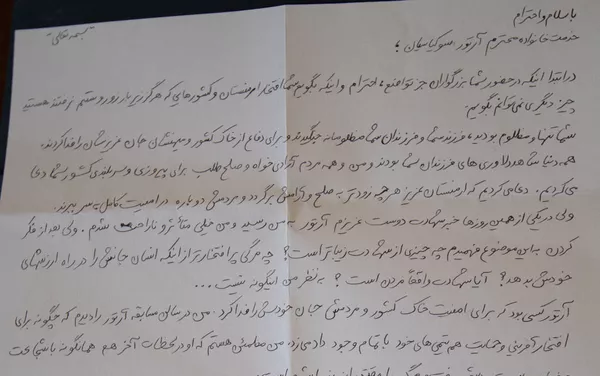 "بسمه تعالی"
با سلام و احترام
خدمت خانواده محترم آرتور سوکیاسیان ؛
در ابتدا اینکه در حضور شما بزرگواران جز تواضع، احترام و اینکه بگویم شما افتخار ارمنستان و کشورهایی که هرگز زیر بار زور و ستم نرفتند هستید
چیز دیگری نمی‌توانم بگویم.
شما تنها و مظلوم بودید، فرزند شما و فرزندان شما مظلومانه جنگیدند و برای دفاع از خاک کشور و میهنشان جان عزیزشان را فدا کردند.
همه دنیا شاهد دلاوری های فرزندان شما بودند و من و همه مردم آزادی خواه و صلح طلب برای پیروزی و سربلندی کشور شما دعا
می‌کردیم. دعا می کردیم که ارمنستان عزیز هرچه زودتر به صلح و آرامش برگردد و مردمش دوباره در امنیت کامل به سر ببرند.
ولی در یکی از همین روزها خبر شهادت دوست عزیزم آرتور به من رسید و من خیلی متأثر و ناراحت شدم. ولی بعد از فکر
کردن به این موضوع فهمیدم چه چیزی از شهادت زیباتر است؟ چه مرگی پر افتخارتر از اینکه انسان جانش را در راه ارزشهای
خودش بدهد؟ آیا شهادت واقعاً مردن است؟ به نظر من اینگونه نیست ...
آرتور کسی بود که برای امنیت خاک کشور و مردمش جان خودش را فدا کرد. من در سالن مسابقه آرتور را دیدم که چگونه برای
افتخار آفرینی و حمایت هم تیمی های خود با تمام وجود داد می‌زد، من مطمئن هستم که او در لحظات آخر هم همانگونه با شجاعت